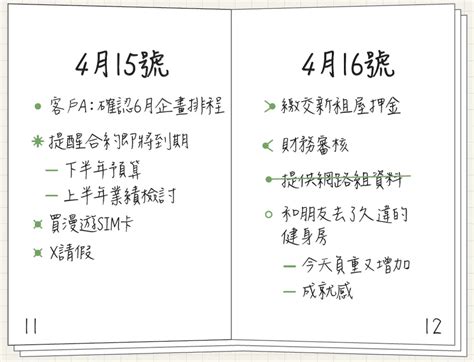 4月15號
客FA:確認6月企畫排程
提醒合約即將到期
— 下半年預算
— 上半年業績檢討
買漫遊SIM卡
X請假
11
4月16號
繳交新租屋押金
財務審核
提供網路組資料
和朋友去了久違的
健身房
— 今天負重又增加
— 成就感
12